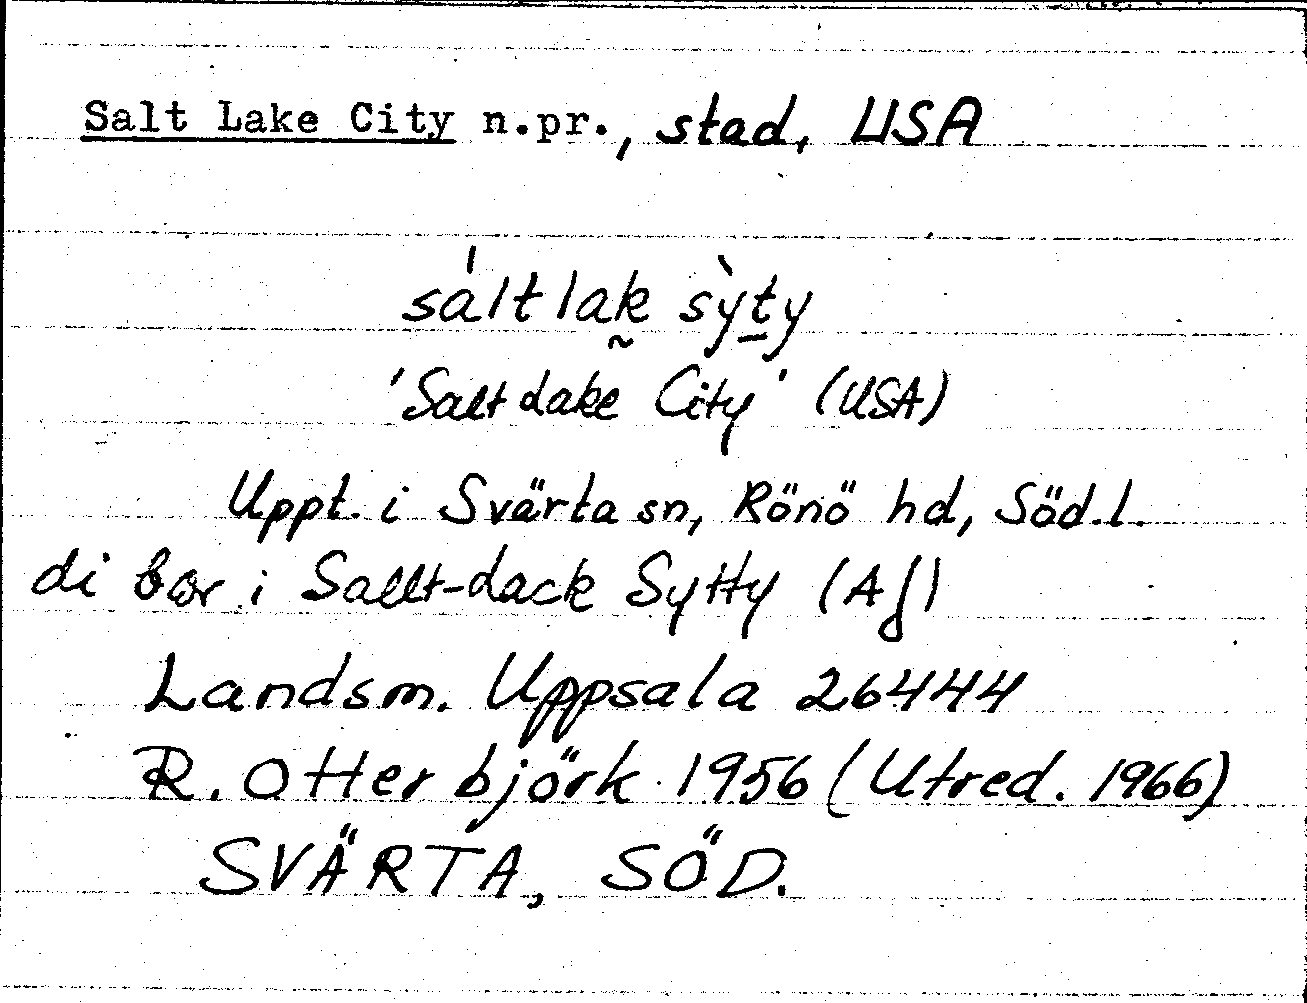 Salt Lake City n.pr., stad, USA
sáltlak̰ sỳṯy
'Salt Lake City' (USA)
Uppt. i Svärta sn, Rönö hd, Söd.l.
di bor i Sallt-Lack Sytty (Af)
Landsm. Uppsala 26444
R. Otterbjörk 1956 (Utred. 1966)
SVÄRTA, SÖD.